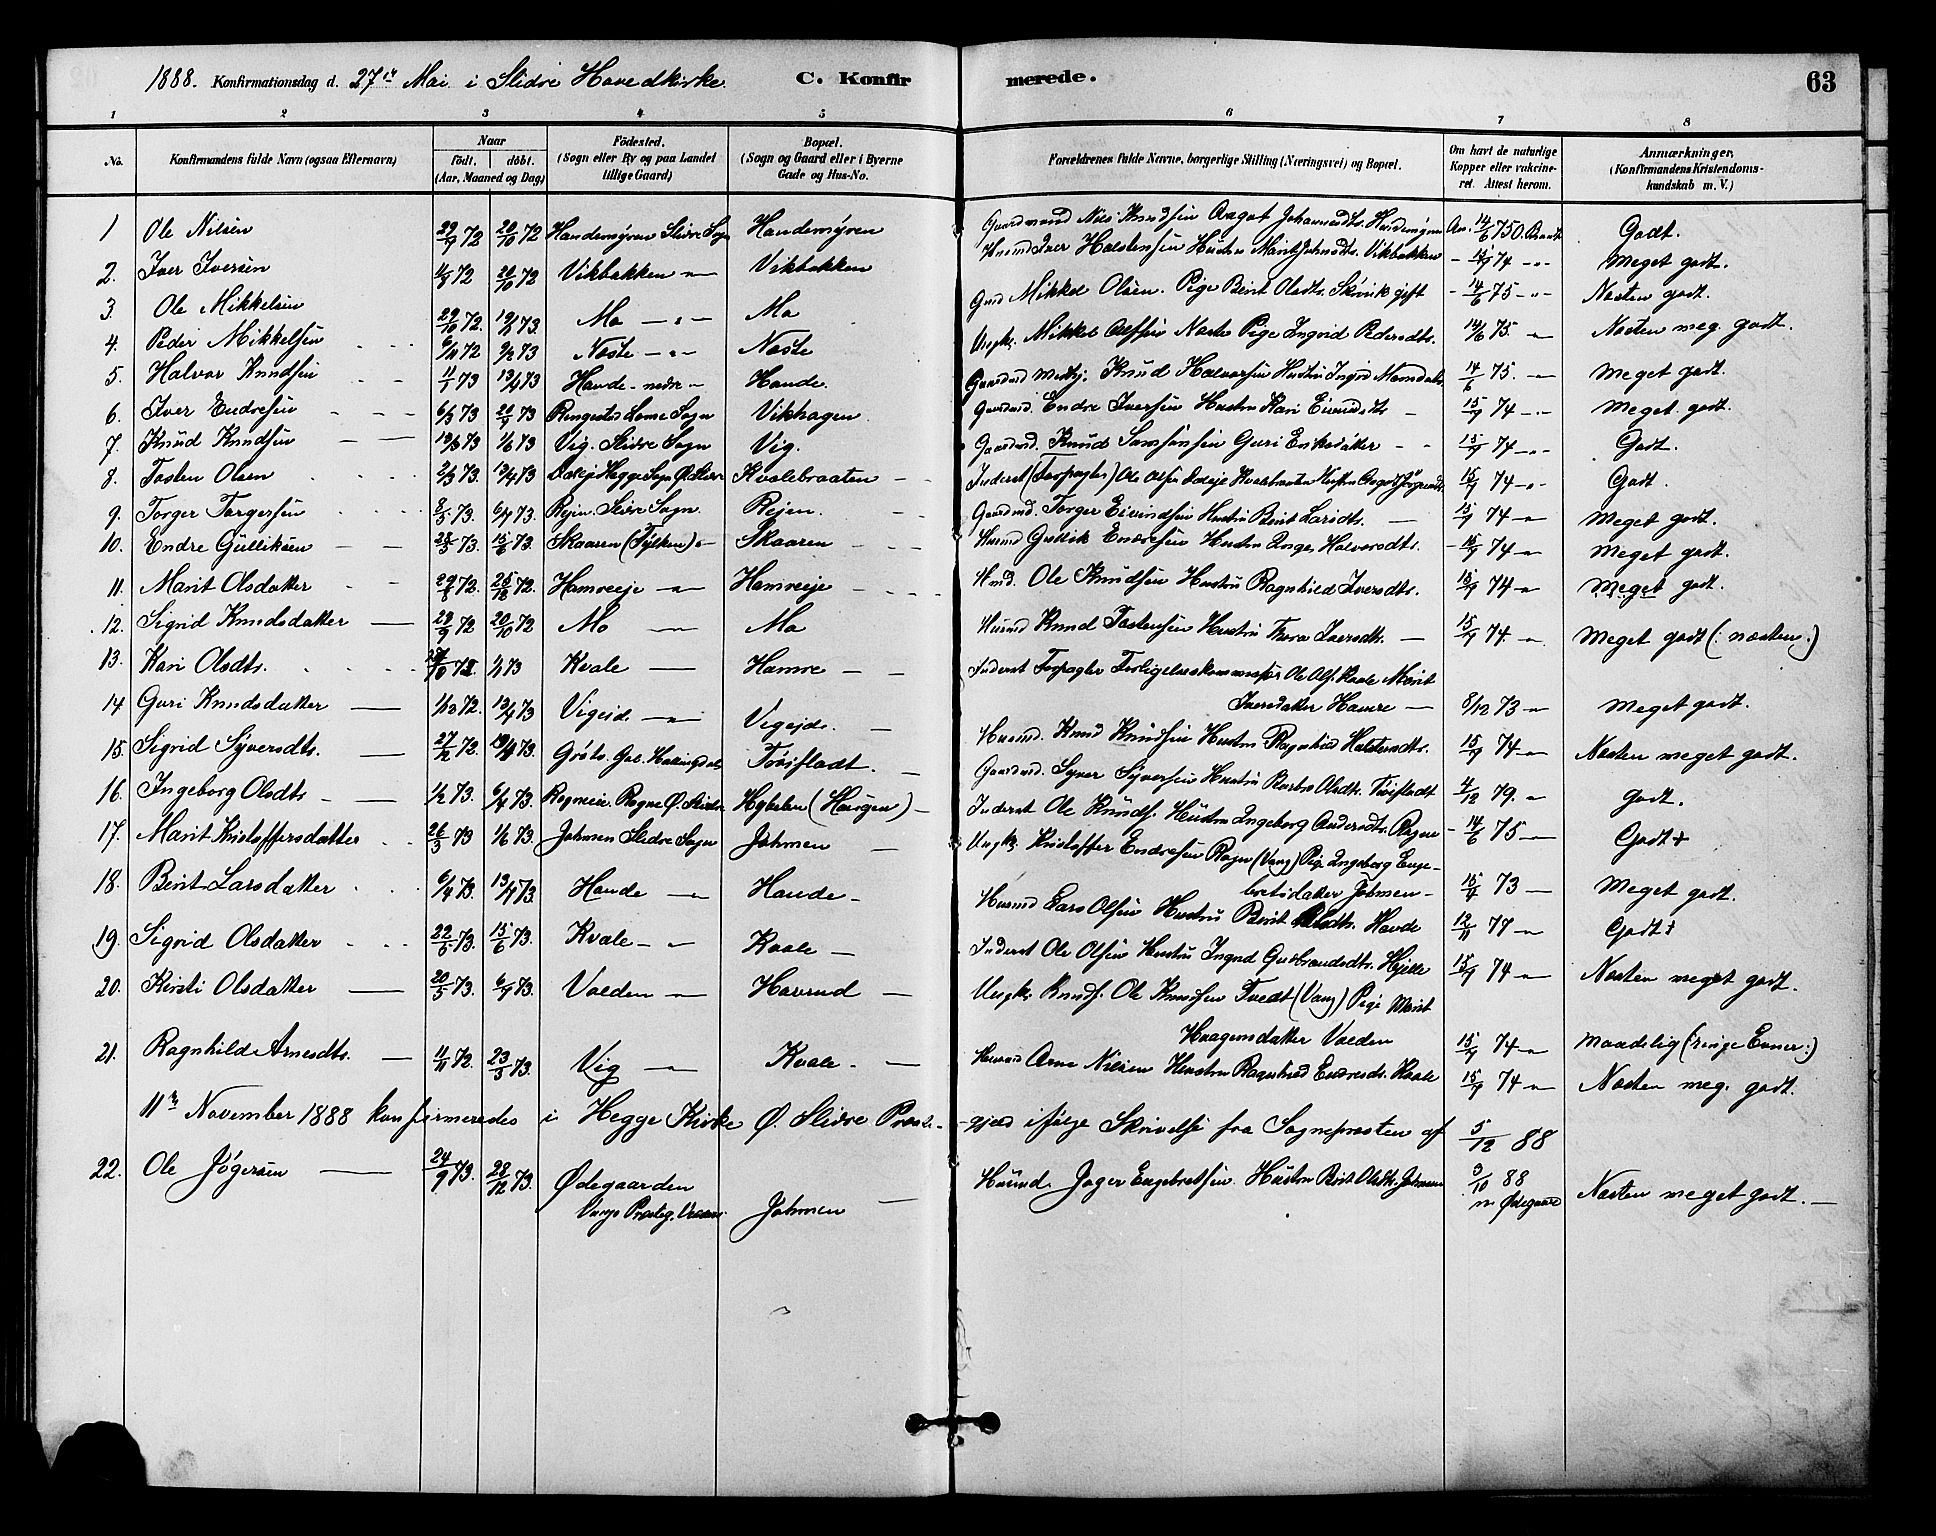 1888. Konfirmationsdag d. 27de Mai i Slidre Hovedkirke. C. Konfirmerede. 63
1 2 3 4 5 6 7 8
No. Konfirmandens fulde Navn (ogsaa Efternavn) Naar födt. döbt. (Aar, Maaned og Dag) Födested. (Sogn eller By og paa Landet tillige Gaard) Bopæl. (Sogn og Gaard eller i Byerne Gade og Hus-No. Forældrenes fulde Navne, borgerlige Stilling (Næringsvei) og Bopæl. Om havt de naturlige Kopper eller vakcineret. Attest herom. Anmærkninger. (Konfirmandens Kristendomskundskab m. V.)
1 Ole Nilsen 29/9 72 20/10 72 Handemÿren Slidre Sogn Handemÿren Gaardmand Nils Knudsen Aagot Johannesdtr. Handemÿren An. 14/6 75 O. Brandt Godt.
2. Iver Iversen 72 20/10 72 Vikbakken -"- Vikbakken Husmd Iver Halstensen Hustru Marit Johnsdtr. Vikbakken 74 -"- Meget godt.
3. Ole Mikkelsen 29/10 72. 73. Mo -"- Mo Gmd Mikkel Olsen. Pige Berit Olsdtr. Skivik gift - 14/6 75 -"- Næsten godt.
4. Peder Mikkelsen 6/11 72 9/2 73 Næste -"- Næste Ungk. Mikkel Næste Pige Ingrid Pedersdtr. 14/6 75. -"- Næsten meg. godt.
5. Halvor Knudsen 73 13/4 73 Hande - nedre - Hande. Gaardmd Knud Halvorsen Hustru Ingrid 14/6 75. -"- Meget godt.
6. Iver Endresen 6/3 73 73 Ringestad Lome Sogn Vikhagen Gaardmd. Endre Iversen Hustru Kari Eivindsdtr - 15/9 74 -"- Meget godt.
7. Knud Knudsen 73 1/6 73 Vig. Slidre Sogn Vig. Gaardmd. Knud Samsonsen Guri Eriksdatter - - 15/9 74 -"- Godt.
8. Tosten Olsen 2/3 73. 13/4 73 Hegge Sogn Ø. Slidre Kvalebraaten Inderst (Forpagter) Ole Olsen Kvalebraaten Hustru 15/9 74 -"- Godt.
9. Torger Torgersen 8/3 73. 6/4 73. Rejen. Slidre Sogn. Rejen. Gaardmd. Torger Eivindsen Hustru Berit Larsdtr. - 15/9 74 -"- Meget godt.
10. Endre Gulliksen 73. 15/6 73. Skaaren (Fÿlken) -"- Skaaren Husmd Gullik Endresen Hustru Inge Halvorsdtr. - 15/9 74 -"- Meget godt.
11. Marit Olsdatter 72. 72. Hamreeje -"- Hamreeje Hmd. Ole Knudsen Hustru Ragnhild Iversdtr. 15/9 74 -"- Meget godt.
12. Sigrid Knudsdatter 29/9 72 20/10 72 Mo -"- Mo Husmd Knud Tostensen Hustru Thora Iversdtr. - 15/9 74. -"- Meget godt (: næsten :)
13. Kari Olsdtr. 72 1/1 73 Kvale - Hamre Inderst Forpagter Forligelseskommissær Ole Ols. Kvale Marit
Iversdatter Hamre - 8/12 73 -"- Meget godt.
14 Guri Knudsdatter 1/12 72. 13/4 73 Vigeid. -"- Vigejd. Husmd. Knud Knudsen Hustru Ragnhild Halstensdtr. 15/9 74 -"- Næsten meget godt.
15. Sigrid Sÿversdtr. 27/12 72. 73. Grøto. Gol. Hallingdal Tøisfladt. Gaardmd. Syver Sÿversen Hustru Barbro Olsdtr. Tøisfladt 4/12 79. -"- Godt.
16. Ingeborg Olsdtr 1/2 73. 6/4 73. Rogneeie. Rogne Ø. Slidre Hybelen (Haugen) Inderst Ole Knudsf. Hustru Ingeborg Andersdtr. Rogne - 14/6 75 - Godt+
17. Marit Kristoffersdatter 26/3 73 1/6 73. Johmen Slidre Sogn Johmen Ungk. Kristoffer Endresen (Vang) Pige Ingeborg Enge-
bretsdatter Johmen - 15/9 73 - Meget godt.
18. Berit Larsdatter 6/4 73. 13/4 73. Hande -"- Hande - Husmd Lars Olsen Hustru Berit Olsdtr. Hande 12/11 77 -"- Godt+
19. Sigrid Olsdatter 22/5 73. 15/6 73. Kvale -"- Kvale - Inderst Ole Olsen Hustru Ingrid Gulbrandsdtr. Hjelle 15/9 74 -"- Næsten meget godt.
20. Kirsti Olsdatter 20/5 73. 6/7 73. Volden -"- Havrud - Ungk. Ole Knudsen Tvedt (Vang) Pige Marit
Haagensdatter Volden 15/9 74 -"- Maadelig (: ringe Evner :)
21. Ragnhild Arnesdtr. 11/11 72. 23/3 73. Vig -"- Kvale - Husmd Arne Nilsen Hustru Ragnhild Endresdtr. Kvale 15/9 74 -"- Næsten meg. godt.
11te November 1888 konfirmeredes i Hegge Kirke Ø. Slidre Præste-gjæld ifølge Skrivelse fra Sognepræsten af 5/12 88
22. Ole Jøgersen 24/9 73. 28/12 73. Ødegaarden Johmen Husmd. Jøger Engebretsen. Hustru Berit Olsdtr. Johmen 3/10 88 Næsten meget godt. -
Vangs Præsteg. Ødegaard